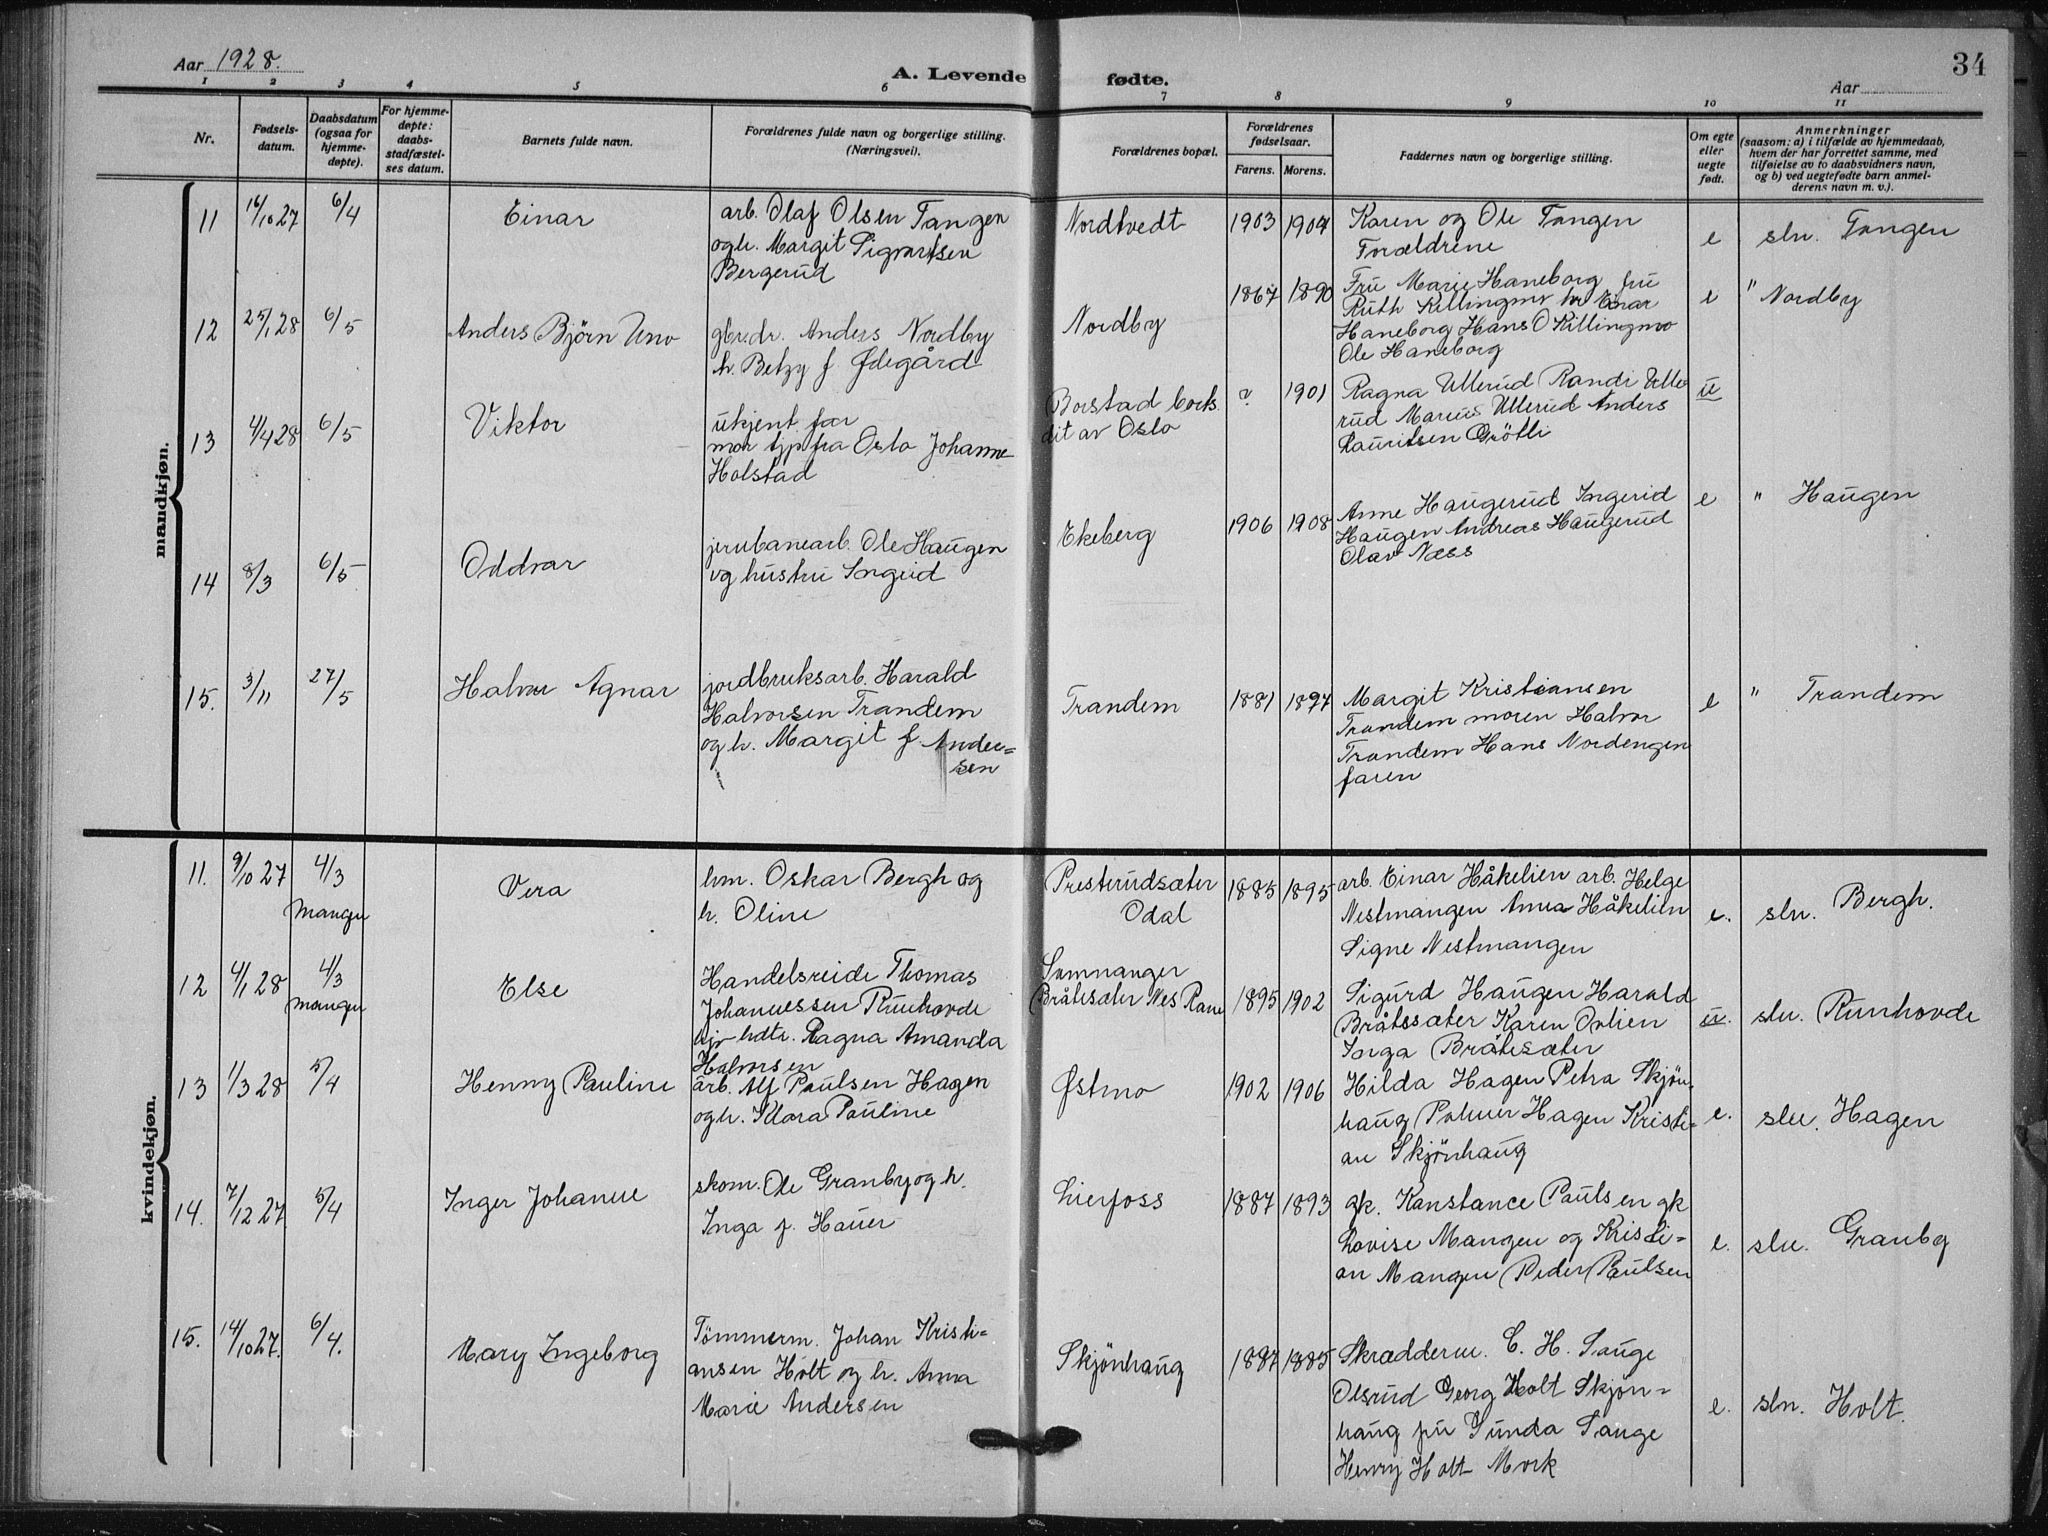 Aar 1928.
A. Levende fødte.
34
Aar
1 2 3 4 5 6 7 8 9 10 11
Nr.
Fødsels-
datum.
Daabsdatum
(ogsaa for
hjemme-
døpte).
For hjemme-
døpte:
daabs-
stadfæstel-
ses datum.
Barnets fulde navn.
Forældrenes fulde navn og borgerlige stilling.
(Næringsvei).
Forældrenes bopæl.
Forældrenes
fødselsaar.
Farens. Morens.
Faddernes navn og borgerlige stilling.
Om egte
eller
uegte
født.
Anmerkninger
(saasom: a) i tilfælde av hjemmedaab,
hvem der har forrettet samme, med
tilføielse av to daabsvidners navn,
og b) ved uegtefødte barn anmel-
derens navn m. v.).
mandkjøn.
11 16/10 27 6/4 Einar
arb. Olaf Olsen Tangen
og h. Margit Sigvartsen
Bergerud
Nordtvedt 1903 1904
Karen og Ole Tangen
Forældrene
e sln. Tangen
12 25/1 28 6/5 Anders Bjørn Uno
gbr.dr. Anders Nordby
h. Betzy f. Ødegård
Nordby 1867 1890
Fru Marie Haneborg fru
Ruth Killingmo hr Einar
Haneborg Hans O Killingmo
Ole Haneborg
e " Nordby
13 4/4 28 6/5 Viktor
ukjent far
mor tjp fra Oslo Johanne
Holstad
Borstad borts.
dit av Oslo
? 1901
Ragna Ullerud Randi Ulle
rud Marius Ullerud Anders
Lauritsen Grötli
u
14 8/3 6/5 Oddvar
jernbanearb. Ole Haugen
og hustru Ingrid
Ekeberg 1906 1908
Anne Haugerud Ingerid
Haugen Andreas Haugerud
Olav Næss
e " Haugen
15. 3/11 27/5 Halvor Agnar
jordbruksarb. Harald
Halvorsen Trandem
og h. Margit f. Ander=
sen
Trandem 1881 1897
Margit Kristiansen
Trandem moren Halvor
Trandem Hans Nordengen
faren
e " Trandem
kvindekjøn.
11. 9/10 27 4/3
Mangen
Vera
hm. Oskar Bergh og
h. Oline
Presterudsæter
Odal
1885 1895
arb. Einar Håkelien arb. Helge
Nestmangen Anna Håkelien
Signe Nestmangen
e. sln. Bergh.
12 4/1 28 4/3
Mangen
Else
Handelsreide Thomas
Johannessen Runhovde
Ragna Amanda
Halvorsen
Samnanger
Bråtesæter Nes Rome
1895 1902
Sigurd Haugen Harald
Bråtesæter Karen Ovlien
Inga Bråtesæter
u. sln. Runhovde
13 1/3 28 5/4 Henny Pauline
arb. Alf Paulsen Hagen
og h. Klara Pauline
Østmo 1902 1906
Hilda Hagen Petra Skjøn
haug Palmer Hagen Kristi=
an Skjønhaug
e. sln. Hagen
14. 7/12 27 5/4 Inger Johanne
skom. Ole Granby og h.
Inga f. Hauer
Lierfoss 1887 1893
gk. Konstance Paulsen gk
Lovise Mangen og Kristi=
an Mangen Peder Paulsen
e. sln. Granby
15. 14/10 27. 6/4. Mary Ingeborg
Tømmerm. Johan Kristi=
ansen Holt og h. Anna
Marie Andersen
Skjønhaug 1887 1885
Skrædderne C. H. Sauge
Olsrud Georg Holt Skjøn=
haug fru Gunda Sauge
Henry Holt Mork
e. sln. Holt.